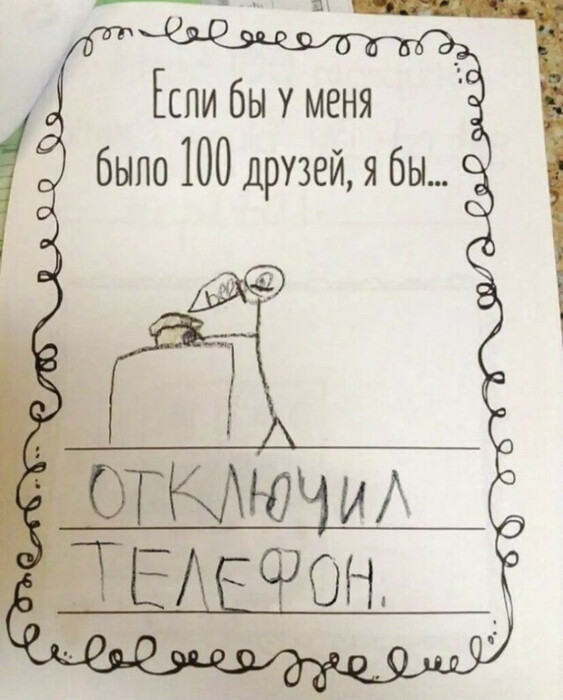 Если бы у меня
было 100 друзей, я бы...
beep
ОТКЛЮЧИЛ
ТЕЛЕФОН.